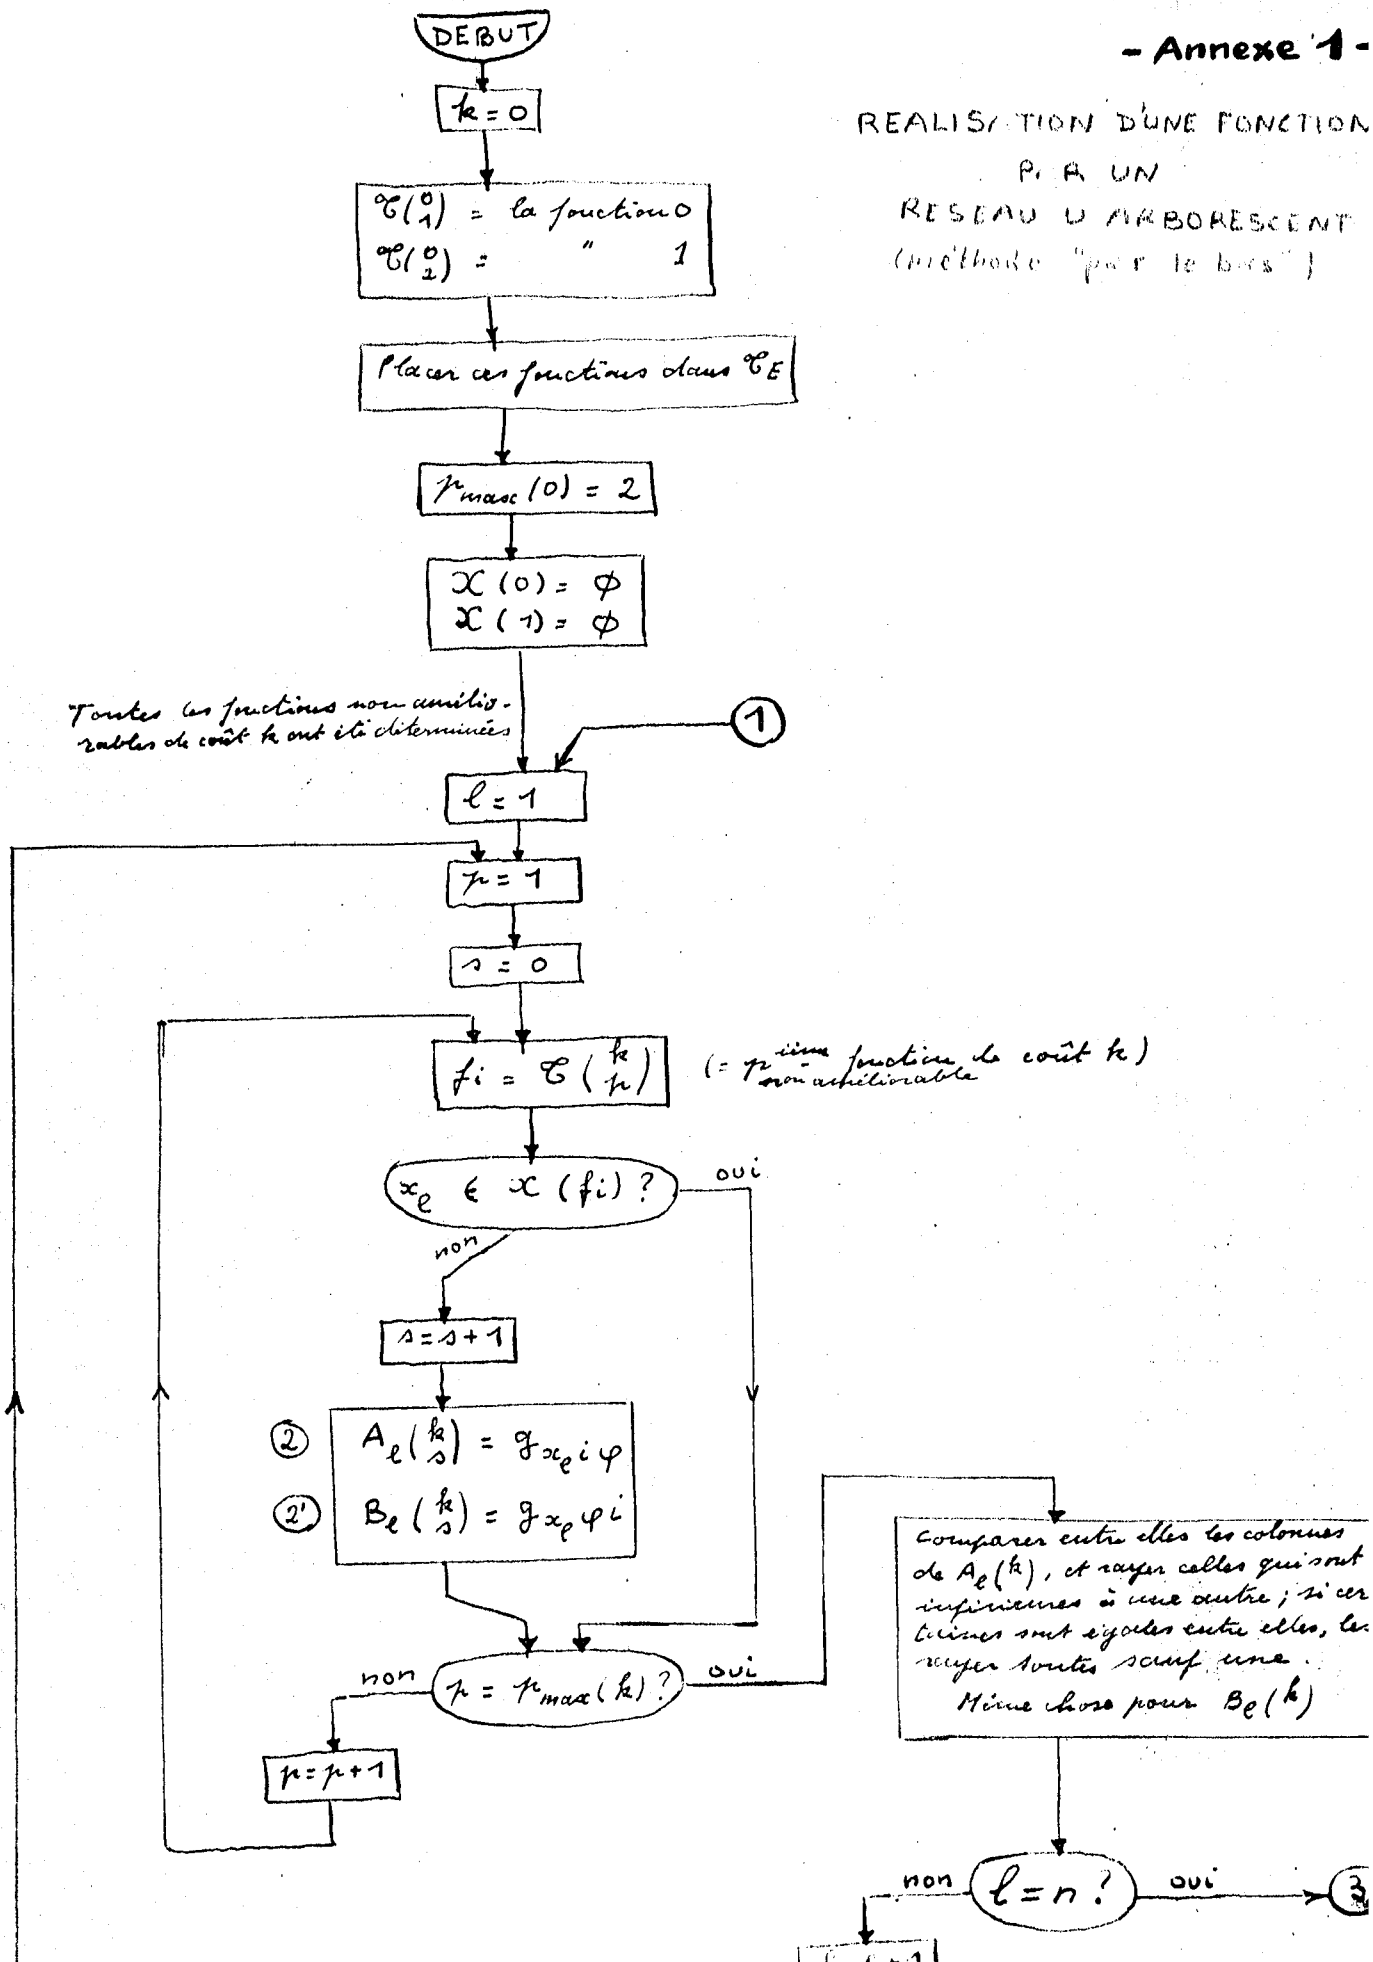 DEBUT
- Annexe 1 -
REALISATION D'UNE FONCTION
PAR UN
RESEAU U ARBORESCENT
(méthode "par le bas")
k = 0
𝒞(0 1) = la fonction 0
𝒞(0 2) = " 1
Placer ces fonctions dans 𝒞E
pmax (0) = 2
X (0) = ϕ
X (1) = ϕ
Toutes les fonctions non amélio-
rables de coût k ont été déterminées
1
l = 1
p = 1
s = 0
fi = 𝒞 (k p)
(= pième fonction de coût k)
non améliorable
xl ∈ X (fi) ?
oui
non
s = s + 1
2
Al (k s) = g xl i φ
2'
Bl (k s) = g xl φ i
Comparer entre elles les colonnes
de Al (k), et rayer celles qui sont
inférieures à une autre ; si cer
taines sont égales entre elles, les
rayer toutes sauf une.
Même chose pour Bl (k)
non
p = pmax (k) ?
oui
p = p + 1
non
l = n ?
oui
3